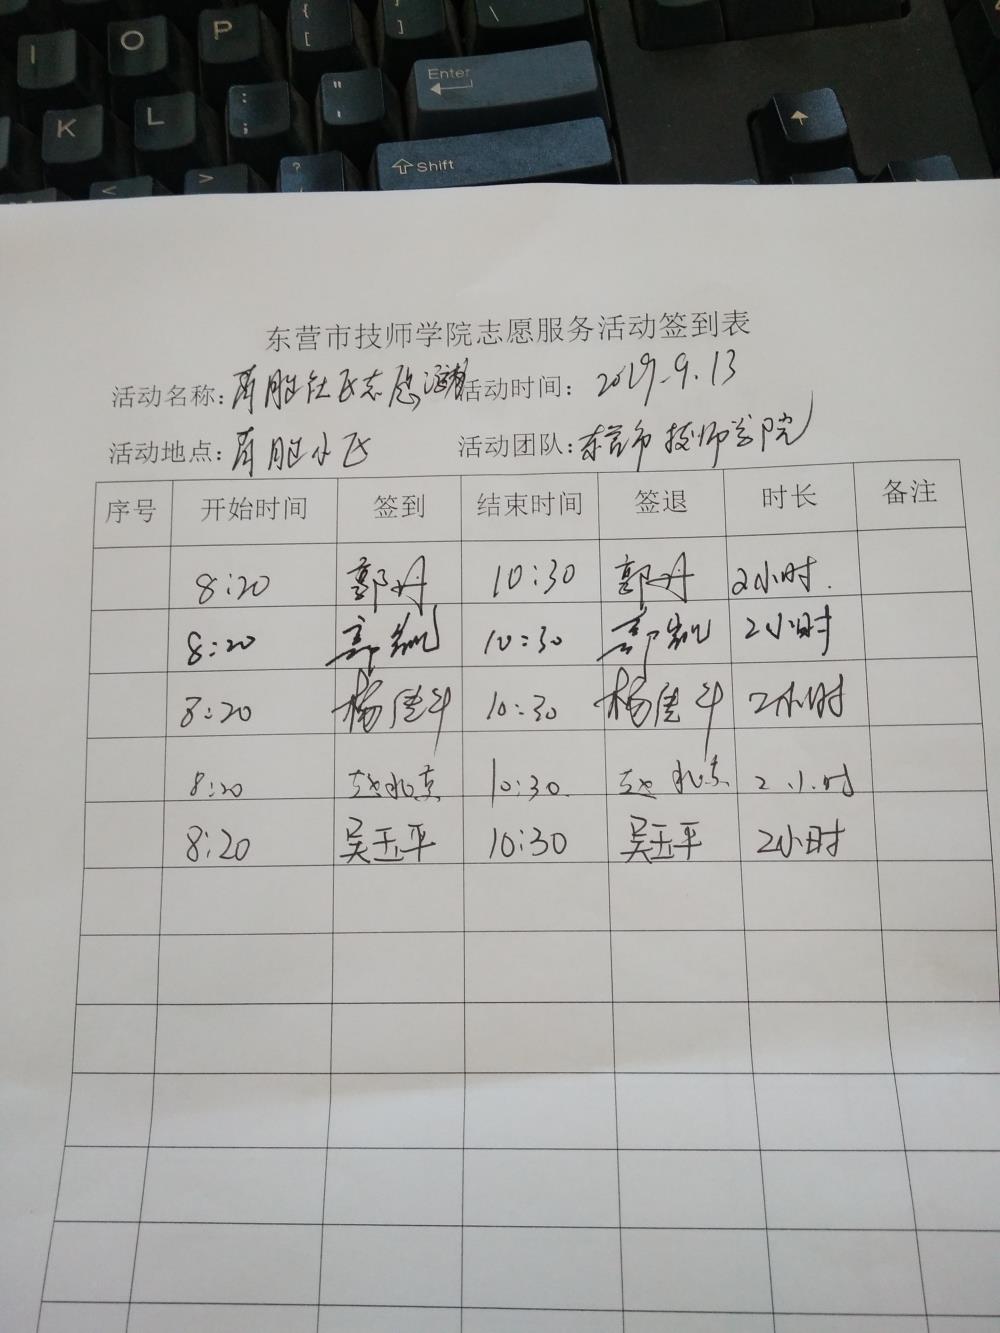 I O P { [ } ] \
Enter
K L : ; " '
Shift
< > ?
东营市技师学院志愿服务活动签到表
活动名称: 胜社区志愿 活动时间: 2019.9.13
活动地点: 胜小区 活动团队: 东营市技师学院
序号 开始时间 签到 结束时间 签退 时长 备注
8:20 郭丹 10:30 郭丹 2小时.
8:20 郭凯 10:30 郭凯 2小时
8:20 杨 10:30 杨 2小时
8:20 赵北京 10:30. 赵北京 2小时
8:20 吴玉平 10:30 吴玉平 2小时